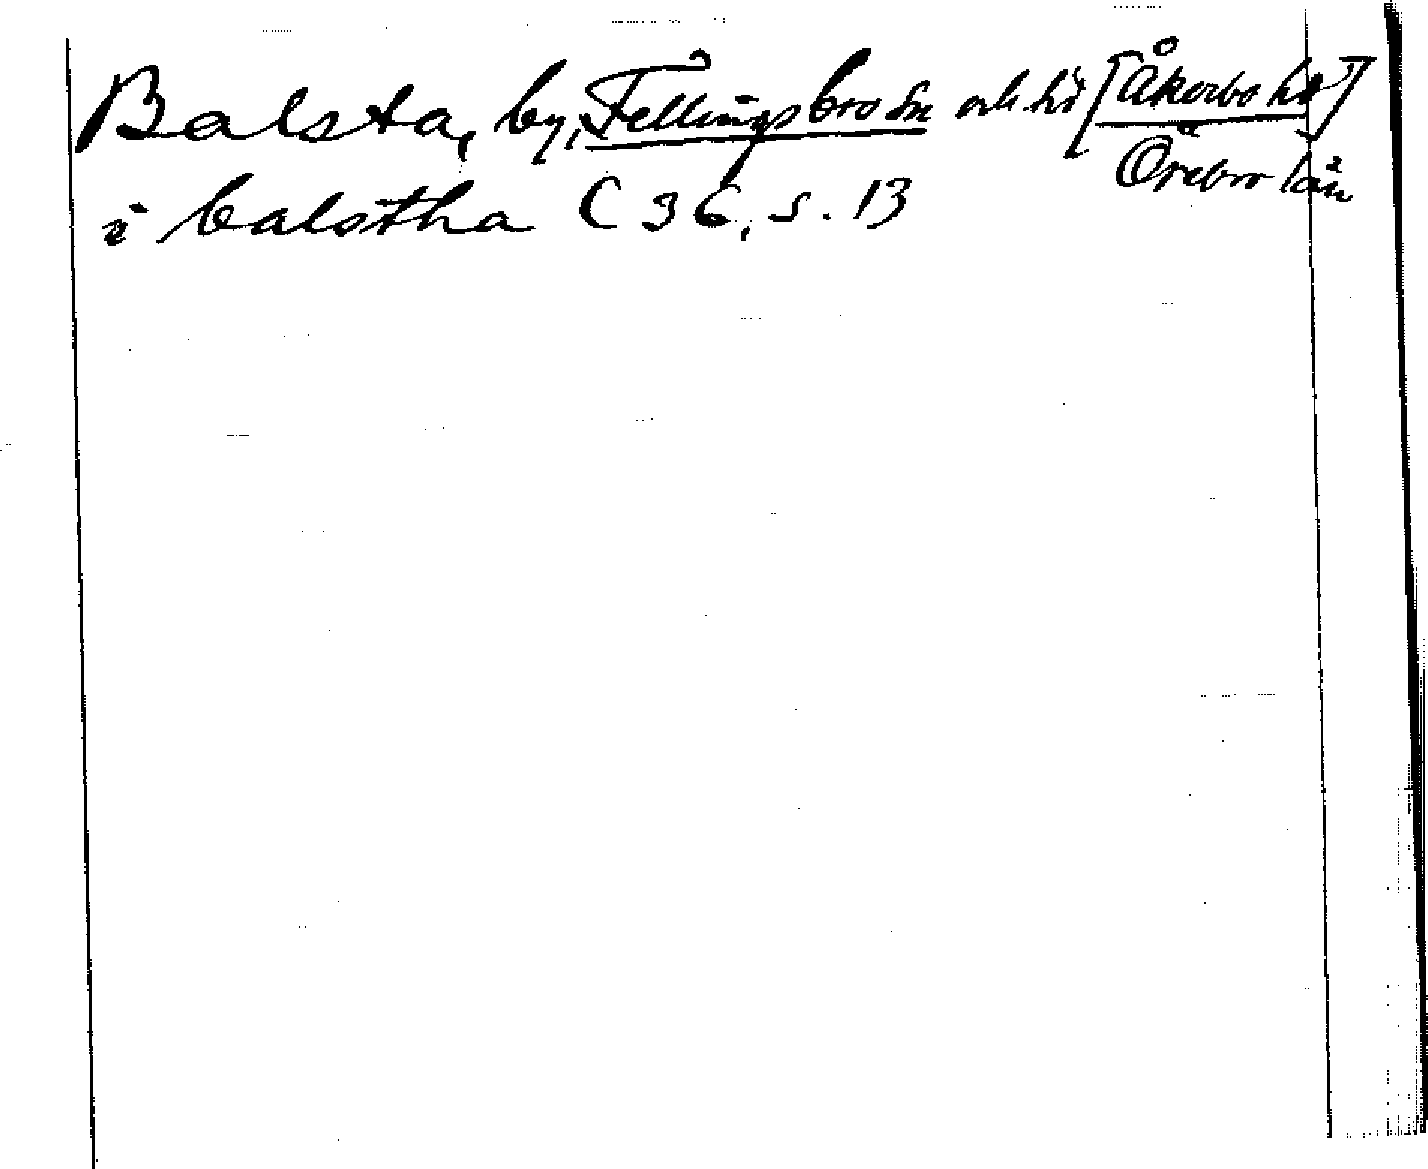 Balsta, by, Fellingsbro sn och hd [Åkerbo hd]
Örebro län
i balstha C 36, s. 13